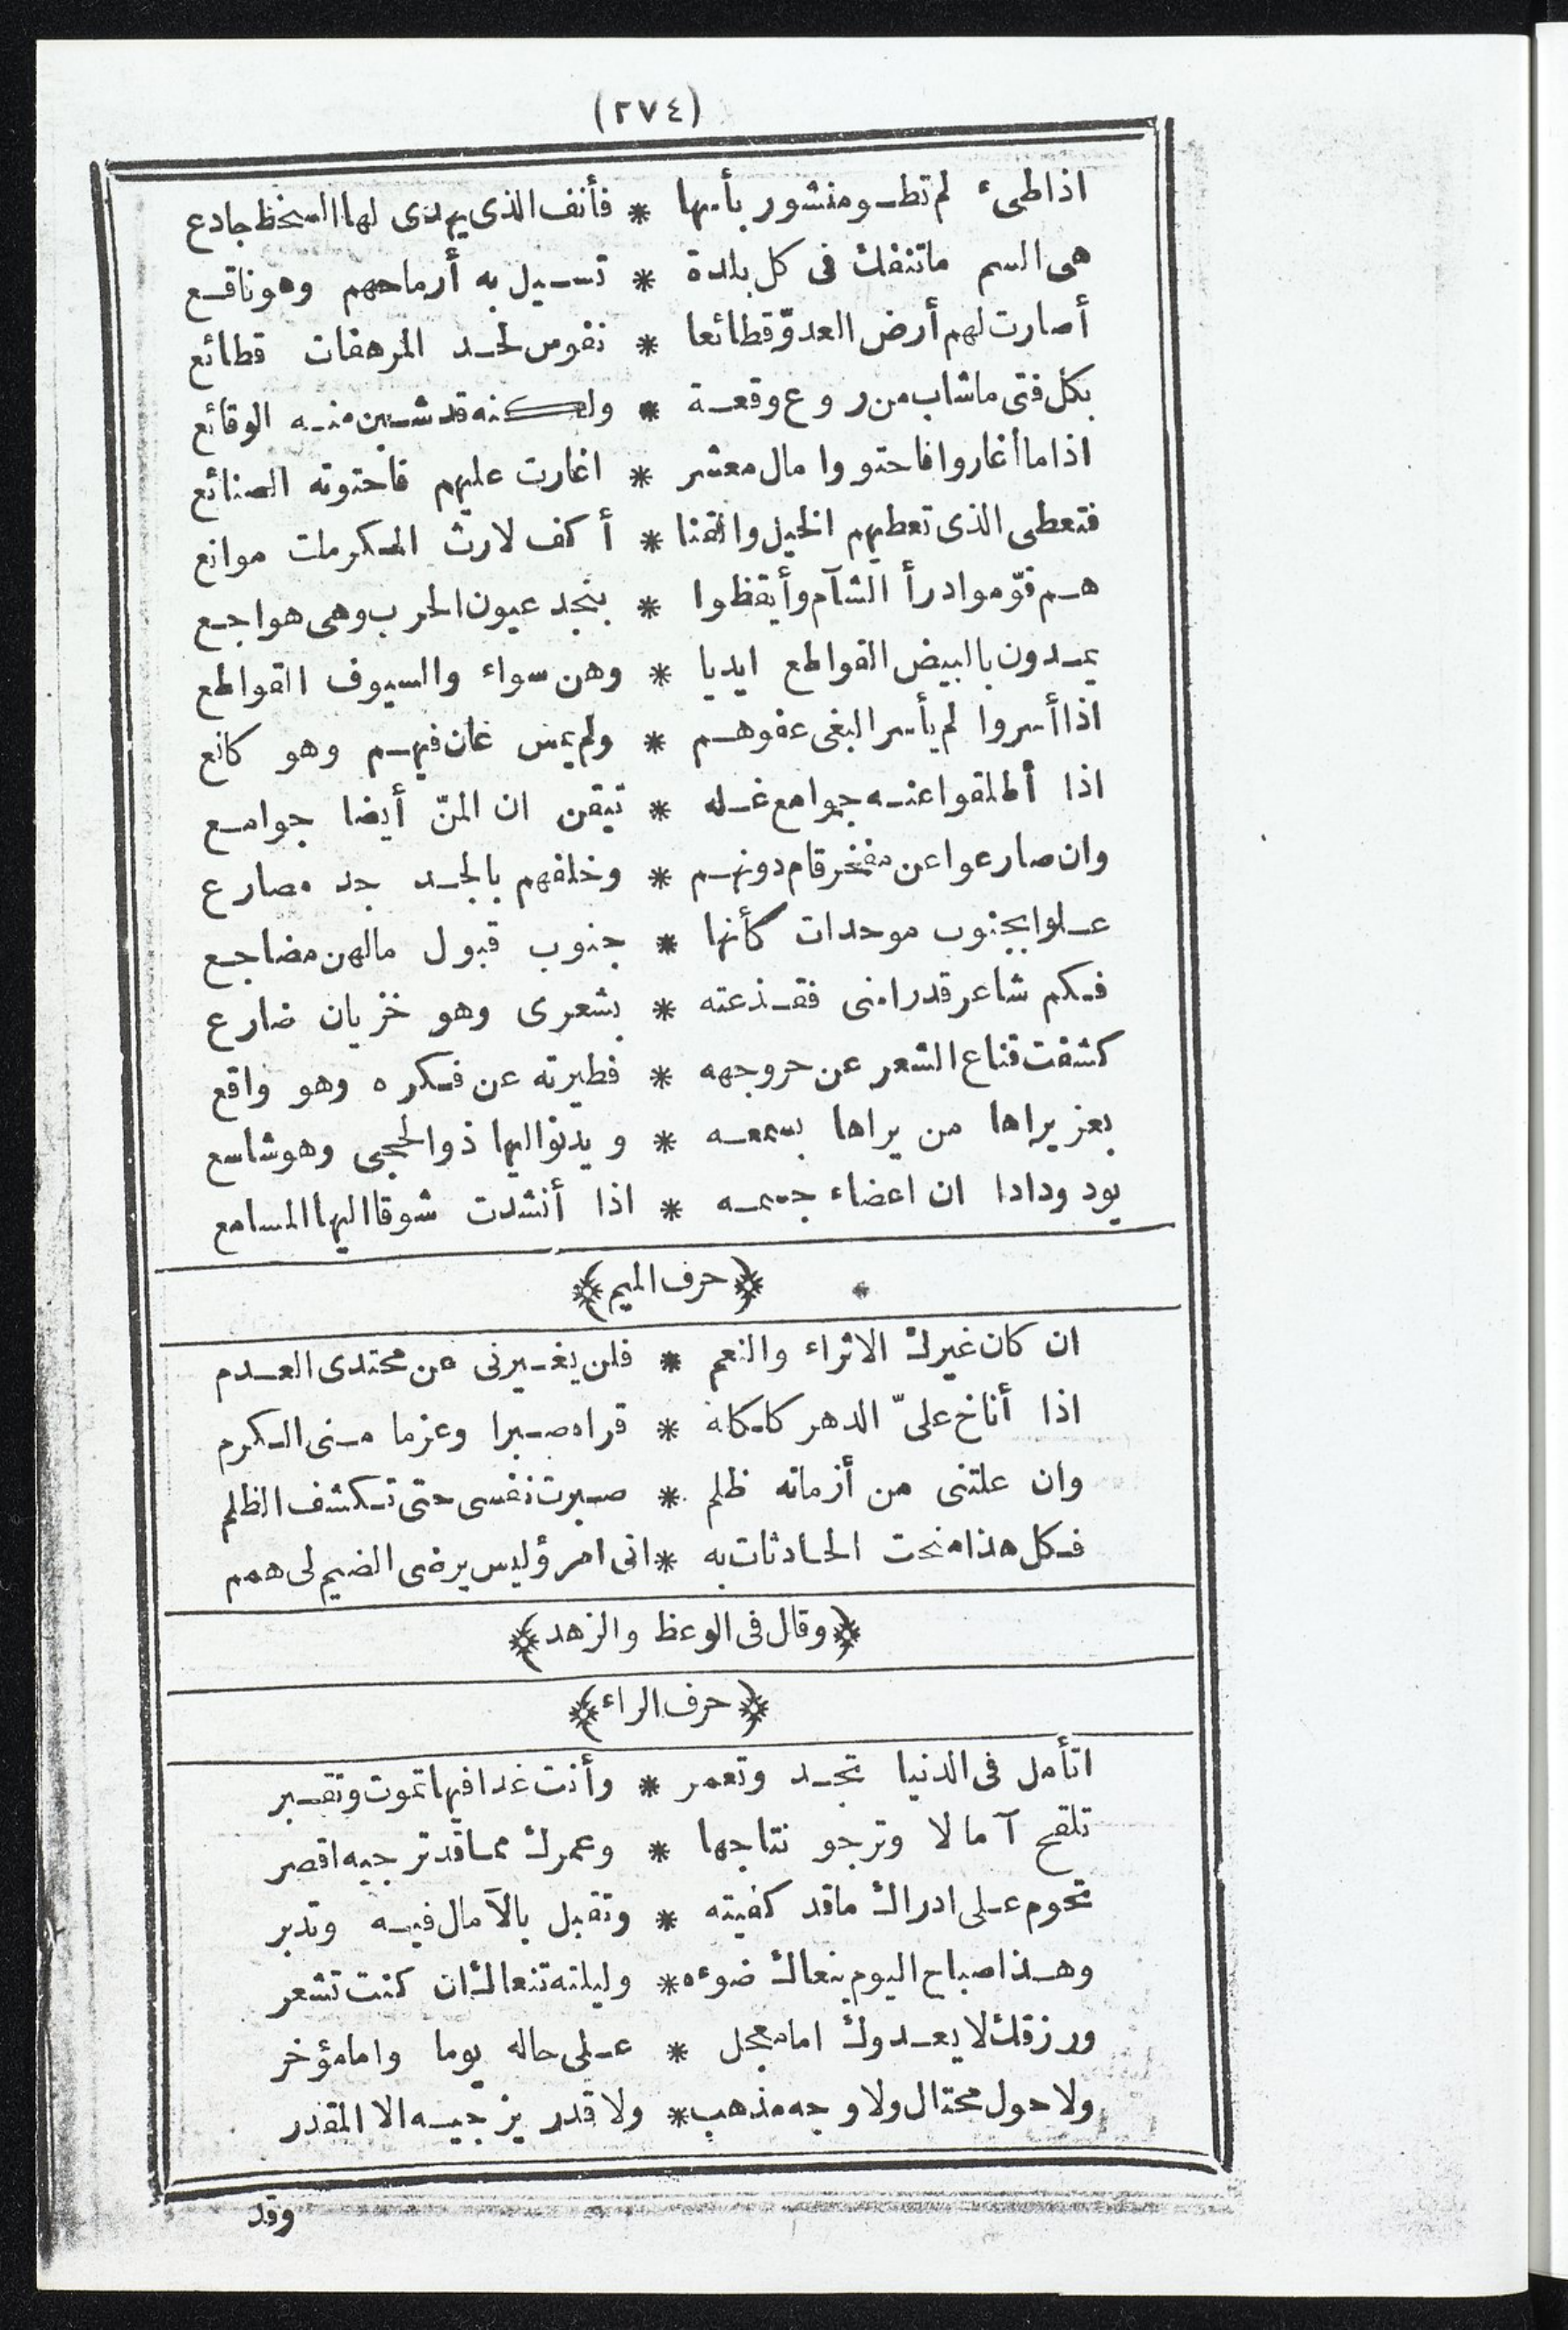 (٢٧٤)
اذا طيء لم تطو منشور بأسها * فأنف الذى يهدى لها السخط جادع
هى السم ماتنفك فى كل بلدة * تسيل به أرماحهم وهو ناقع
أصارت لهم أرض العدوّ قطائعا * نفوس لحد المرهفات قطائع
بكل فتى ماشاب من روع وقعة * ولكنه قد شبن منه الوقائع
اذا ما أغاروا فاحتووا مال معشر * اغارت عليهم فاحتوته الصنائع
فتعطى الذى تعطيهم الخيل والقنا * أكف لارث المكرمات موانع
هم قوّموا درأ الشآم وأيقظوا * بنجد عيون الحرب وهى هواجع
يمدون بالبيض القواطع ايديا * وهن سواء والسيوف القواطع
اذا أسروا لم يأسر البغى عفوهم * ولم يمس عان فيهم وهو كانع
اذا أطلقوا عنه جوامع غله * تيقن ان المنّ أيضا جوامع
وان صارعوا عن مفخر قام دونهم * وخلفهم بالجد جد مصارع
علوا بجنوب موحدات كأنها * جنوب قبول مالهن مضاجع
فكم شاعر قد رامنى فقذعته * بشعرى وهو خزيان ضارع
كشفت قناع الشعر عن حر وجهه * فطيرته عن فكره وهو واقع
بغز يراها من يراها بسمعه * ويدنو اليها ذو الحجى وهو شاسع
يود ودادا ان اعضاء جسمه * اذا أنشدت شوقا اليها المسامع
﴿حرف الميم﴾
ان كان غيرك الاثراء والنعم * فلن يغيرنى عن محتدى العدم
اذا أناخ علىّ الدهر كلكله * قراه صبرا وعزما منى الكرم
وان علتنى من أزمانه ظلم * صبرت نفسى حتى تكشف الظلم
فكل هذا منحت الحادثات به * انى امرؤ ليس يرضى الضيم لى همم
﴿وقال فى الوعظ والزهد﴾
﴿حرف الراء﴾
اتأمل فى الدنيا تجد وتعمر * وأنت غدا فيها تموت وتقبر
تلقح آمالا وترجو نتاجها * وعمرك مما قد ترجيه اقصر
تحوم على ادراك ماقد كفيته * وتقبل بالآمال فيه وتدبر
وهذا صباح اليوم ينعاك ضوءه * وليلته تنعاك ان كنت تشعر
ورزقك لا يعدوك اما معجل * على حاله يوما واما مؤخر
ولا حول محتال ولا وجه مذهب * ولا قدر يزجيه الا المقدر
وقد